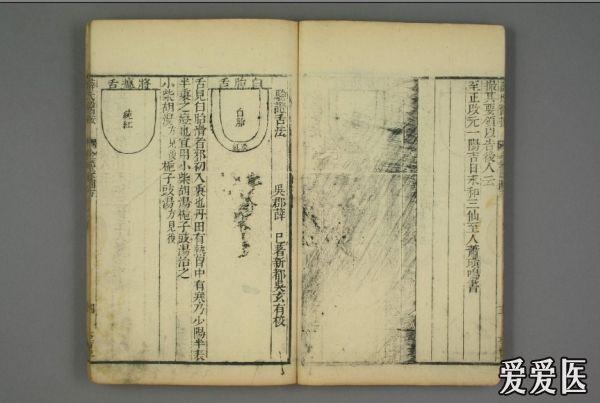 撮其要領以告後人云
至正改元一陽吉日永和三仙至人蕭璜鳴書
驗證舌法
吳郡薛 巳著新都吳玄有校
白胎舌
白胎
舌見白胎滑者邪初入裏也丹田有熱胸中有寒乃少陽半表
半裏之證也宜用小柴胡湯梔子豉湯治之
小柴胡湯方見後梔子豉湯方見後
將瘟舌
純紅
爱爱医